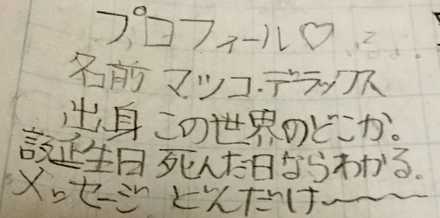 プロフィール♡
名前 マツコ・デラックス
出身 この世界のどこか。
誕生日 死んだ日ならわかる。
メッセージ どんだけ〜〜〜